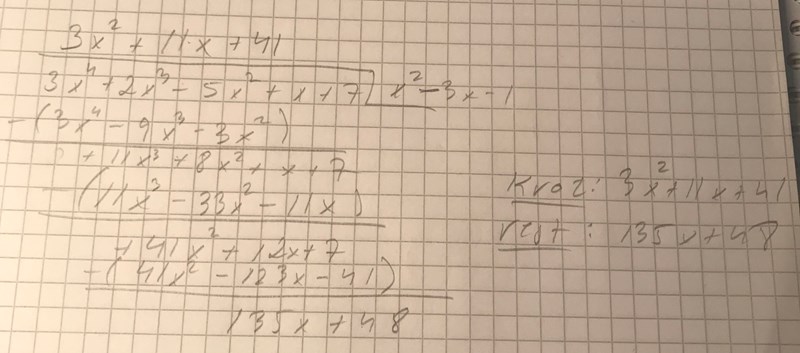 3x² + 11x + 41
3x⁴ + 2x³ - 5x² + x + 7 | x² - 3x - 1
-(3x⁴ - 9x³ - 3x²)
+ 11x³ + 8x² + x + 7
-(11x³ - 33x² - 11x)
+ 41x² + 12x + 7
-(41x² - 123x - 41)
135x + 48
kvot: 3x² + 11x + 41
rest: 135x + 48